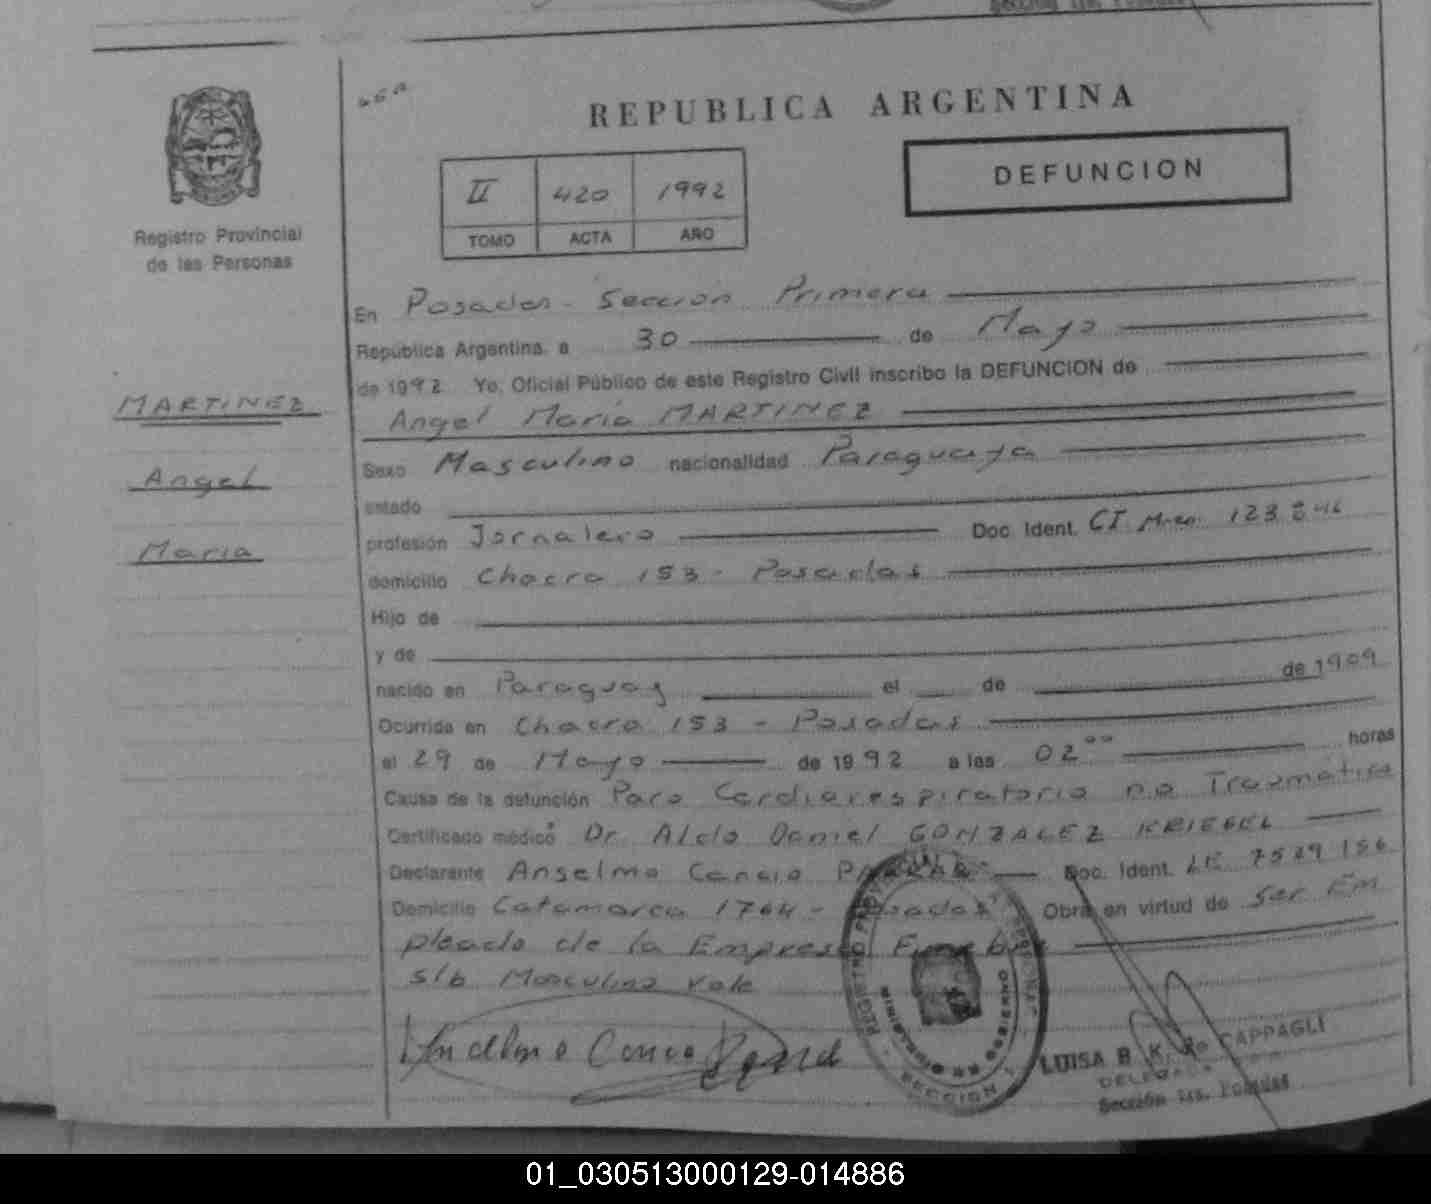 REPUBLICA ARGENTINA
DEFUNCION
II 420 1992
TOMO ACTA AÑO
Registro Provincial
de las Personas
MARTINEZ
Angel
Maria
En Posadas - Sección Primera
República Argentina, a 30 de Mayo
de 1992 Yo, Oficial Público de este Registro Civil inscribo la DEFUNCION de
Angel Maria MARTINEZ
Sexo Masculino nacionalidad Paraguaya
estado
profesión Jornalero Doc. Ident. CI. Mnes. 123.846
domicilio Chacra 153 - Posadas
Hijo de
y de
nacido en Paraguay el de de 1909
Ocurrida en Chacra 153 - Posadas
el 29 de Mayo de 1992 a las 02.00 horas
Causa de la defunción Paro Cardiorespiratorio no Traumatico
Certificado médico Dr. Aldo Daniel GONZALEZ KRIEGEL
Declarante Anselmo Cancio Doc. Ident. LE 7529156
Domicilio Catamarca 1764 - Posadas Obra en virtud de Ser Em
pleado de la Empresa Funebre
s/b Masculino Vale
REGISTRO PROVINCIAL DE LAS PERSONAS
SECCION 1
LUISA B. K. de CAPPAGLI
DELEGADA
Sección 1ra. Posadas
01_030513000129-014886